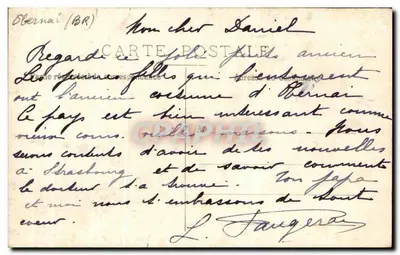 Obernai (BR)
Mon cher Daniel
CARTE POSTALE
Regarde ce joli puits ancien
Les jeunes filles qui l'entourent
ont l'ancien costume d'Obernai
Le pays est bien interessant comme
vieux coins, vieilles maisons. Nous
serons contents d'avoir de tes nouvelles
à Strasbourg et de savoir comment
le docteur t'a trouvé. Ton papa
et moi nous t'embrassons de tout
coeur.
L. Faugeron